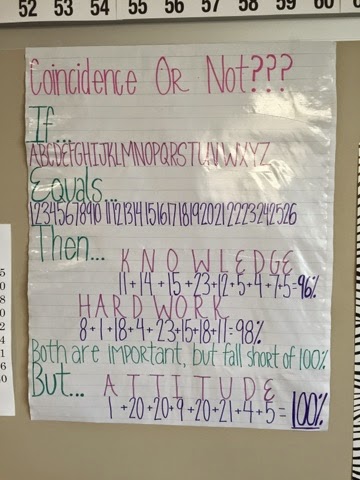 52 53 54 55 56 57 58 59 60
Coincidence Or Not???
If...
ABCDEFGHIJKLMNOPQRSTUVWXYZ
Equals...
1 2 3 4 5 6 7 8 9 10 11 12 13 14 15 16 17 18 19 20 21 22 23 24 25 26
Then...
KNOWLEDGE
11+14+15+23+12+5+4+7+5=96%
HARD WORK
8+1+18+4+23+15+18+11=98%
Both are important, but fall short of 100%
But...
ATTITUDE
1+20+20+9+20+21+4+5=100%